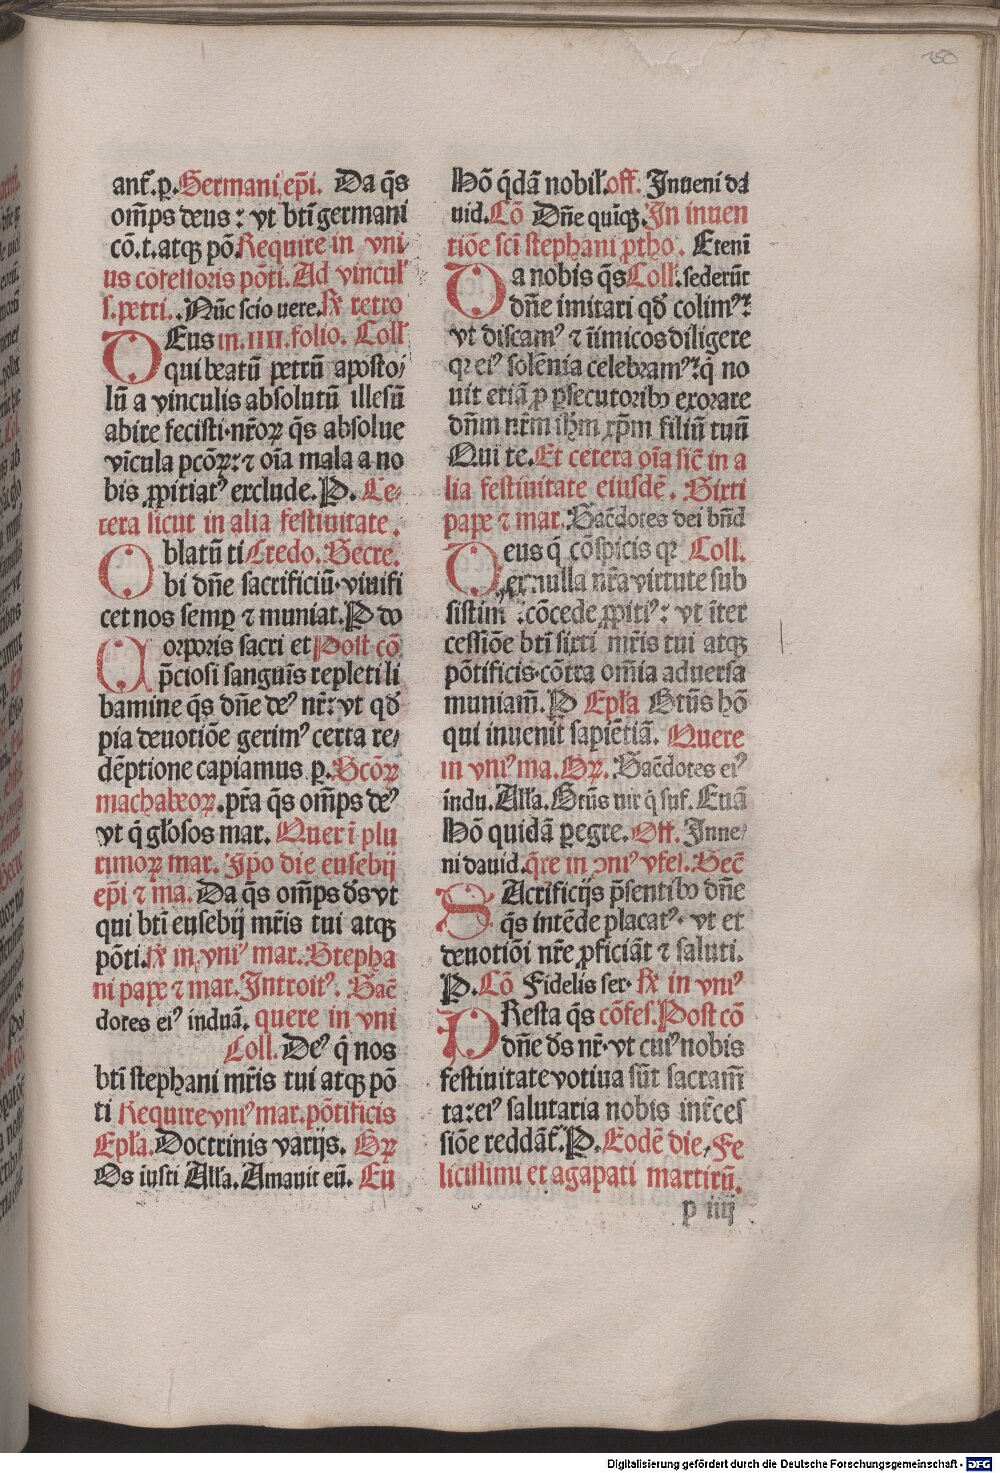 150
ant̃. p. Germani ep̃i. Da q̃s
om̃ps deus: vt btĩ germani
cõ. t. atqꝫ põ. Require in vni
us cõfessoris põti. Ad vincul̃
s. petri. Nũc scio vere. R̃ retro
DEus in. IIII. folio. Coll̃
qui beatũ petrũ aposto/
lũ a vinculis absolutũ illesũ
abire fecisti. nr̃oꝝ q̃s absolue
vĩcula pcõꝝ: ⁊ oĩa mala a no
bis ꝓpitiatꝰ exclude. P. Ce-
tera sicut in alia festiuitate.
Oblatũ ti Credo. Secre.
bi dñe sacrificiũ. viuifi
cet nos semꝑ ⁊ muniat. P do
Corporis sacri et Post cõ
p̃ciosi sanguĩs repleti li
bamine q̃s dñe deꝰ nr̃: vt qd̃
pia deuotiõe gerimꝰ certa re/
dẽptione capiamus. p. Scõꝝ
machabeoꝝ. pr̃a q̃s om̃ps deꝰ
vt q̃ gl̃osos mar. Quer ĩ plu
rimoꝝ mar. Ipo die eusebij
ep̃i ⁊ ma. Da q̃s om̃ps d̃s vt
qui btĩ eusebij mr̃is tui atqꝫ
põti. R̃ in vniꝰ mar. Stepha
ni pape ⁊ mar. Introitꝰ. Sac̃
dotes eiꝰ induã. quere in vni
Coll. Deꝰ q̃ nos
btĩ stephani mr̃is tui atqꝫ põ
ti Require vniꝰ mar. põtificis
Epl̃a. Doctrinis varijs. Gꝝ
Os iusti All̃a. Amauit eũ. Eũ
Hõ q̃dã nobil̃. off. Inueni da
uid. Cõ Dñe quĩqꝫ. In inuen
tiõe scĩ stephani ꝓtho. Etenĩ
Da nobis q̃s Coll̃. sederũt
dñe imitari qd̃ colimꝰ:
vt discamꝰ ⁊ ĩimicos diligere
qꝛ eiꝰ solẽnia celebramꝰ: q̃ no
uit etiã ꝓ ꝑsecutoribꝰ exorare
dñm nr̃m ih̃m xp̃m filiũ tuũ
Qui te. Et cetera oĩa sic̃ in a
lia festiuitate eiusdẽ. Sixti
pape ⁊ mar. Sac̃dotes dei bñd
Deus q̃ cõspicis qꝛ Coll.
ex nulla nr̃a virtute sub
sistimꝰ: cõcede ꝓpitiꝰ: vt ĩter
cessiõe btĩ sixti mr̃is tui atqꝫ
põtificis. cõtra om̃ia aduersa
muniam̃. P Epl̃a Gtũs hõ
qui inuenit sapiẽtiã. Quere
in vniꝰ ma. Gꝝ. Sac̃dotes eiꝰ
indu. All̃a. Gtũs vir q̃ suf. Euã
Hõ quidã ꝑegre. Off. Inue/
ni dauid. q̃re in ↄniꝰ vfes. Sec̃
SAcrificijs p̃sentibꝰ dñe
q̃s intẽde placatꝰ. vt et
deuotiõi nr̃e ꝓficiãt ⁊ saluti.
P. Cõ Fidelis ser. R̃ in vniꝰ
PResta q̃s cõfes. Post cõ
dñe d̃s nr̃. vt cuiꝰ nobis
festiuitate votiua sũt sacram̃
ta: eiꝰ salutaria nobis int̃ces
siõe reddãt̃. P. Eodẽ die, Fe
licissimi et agapati martirũ.
p iiij
Digitalisierung gefördert durch die Deutsche Forschungsgemeinschaft - DFG